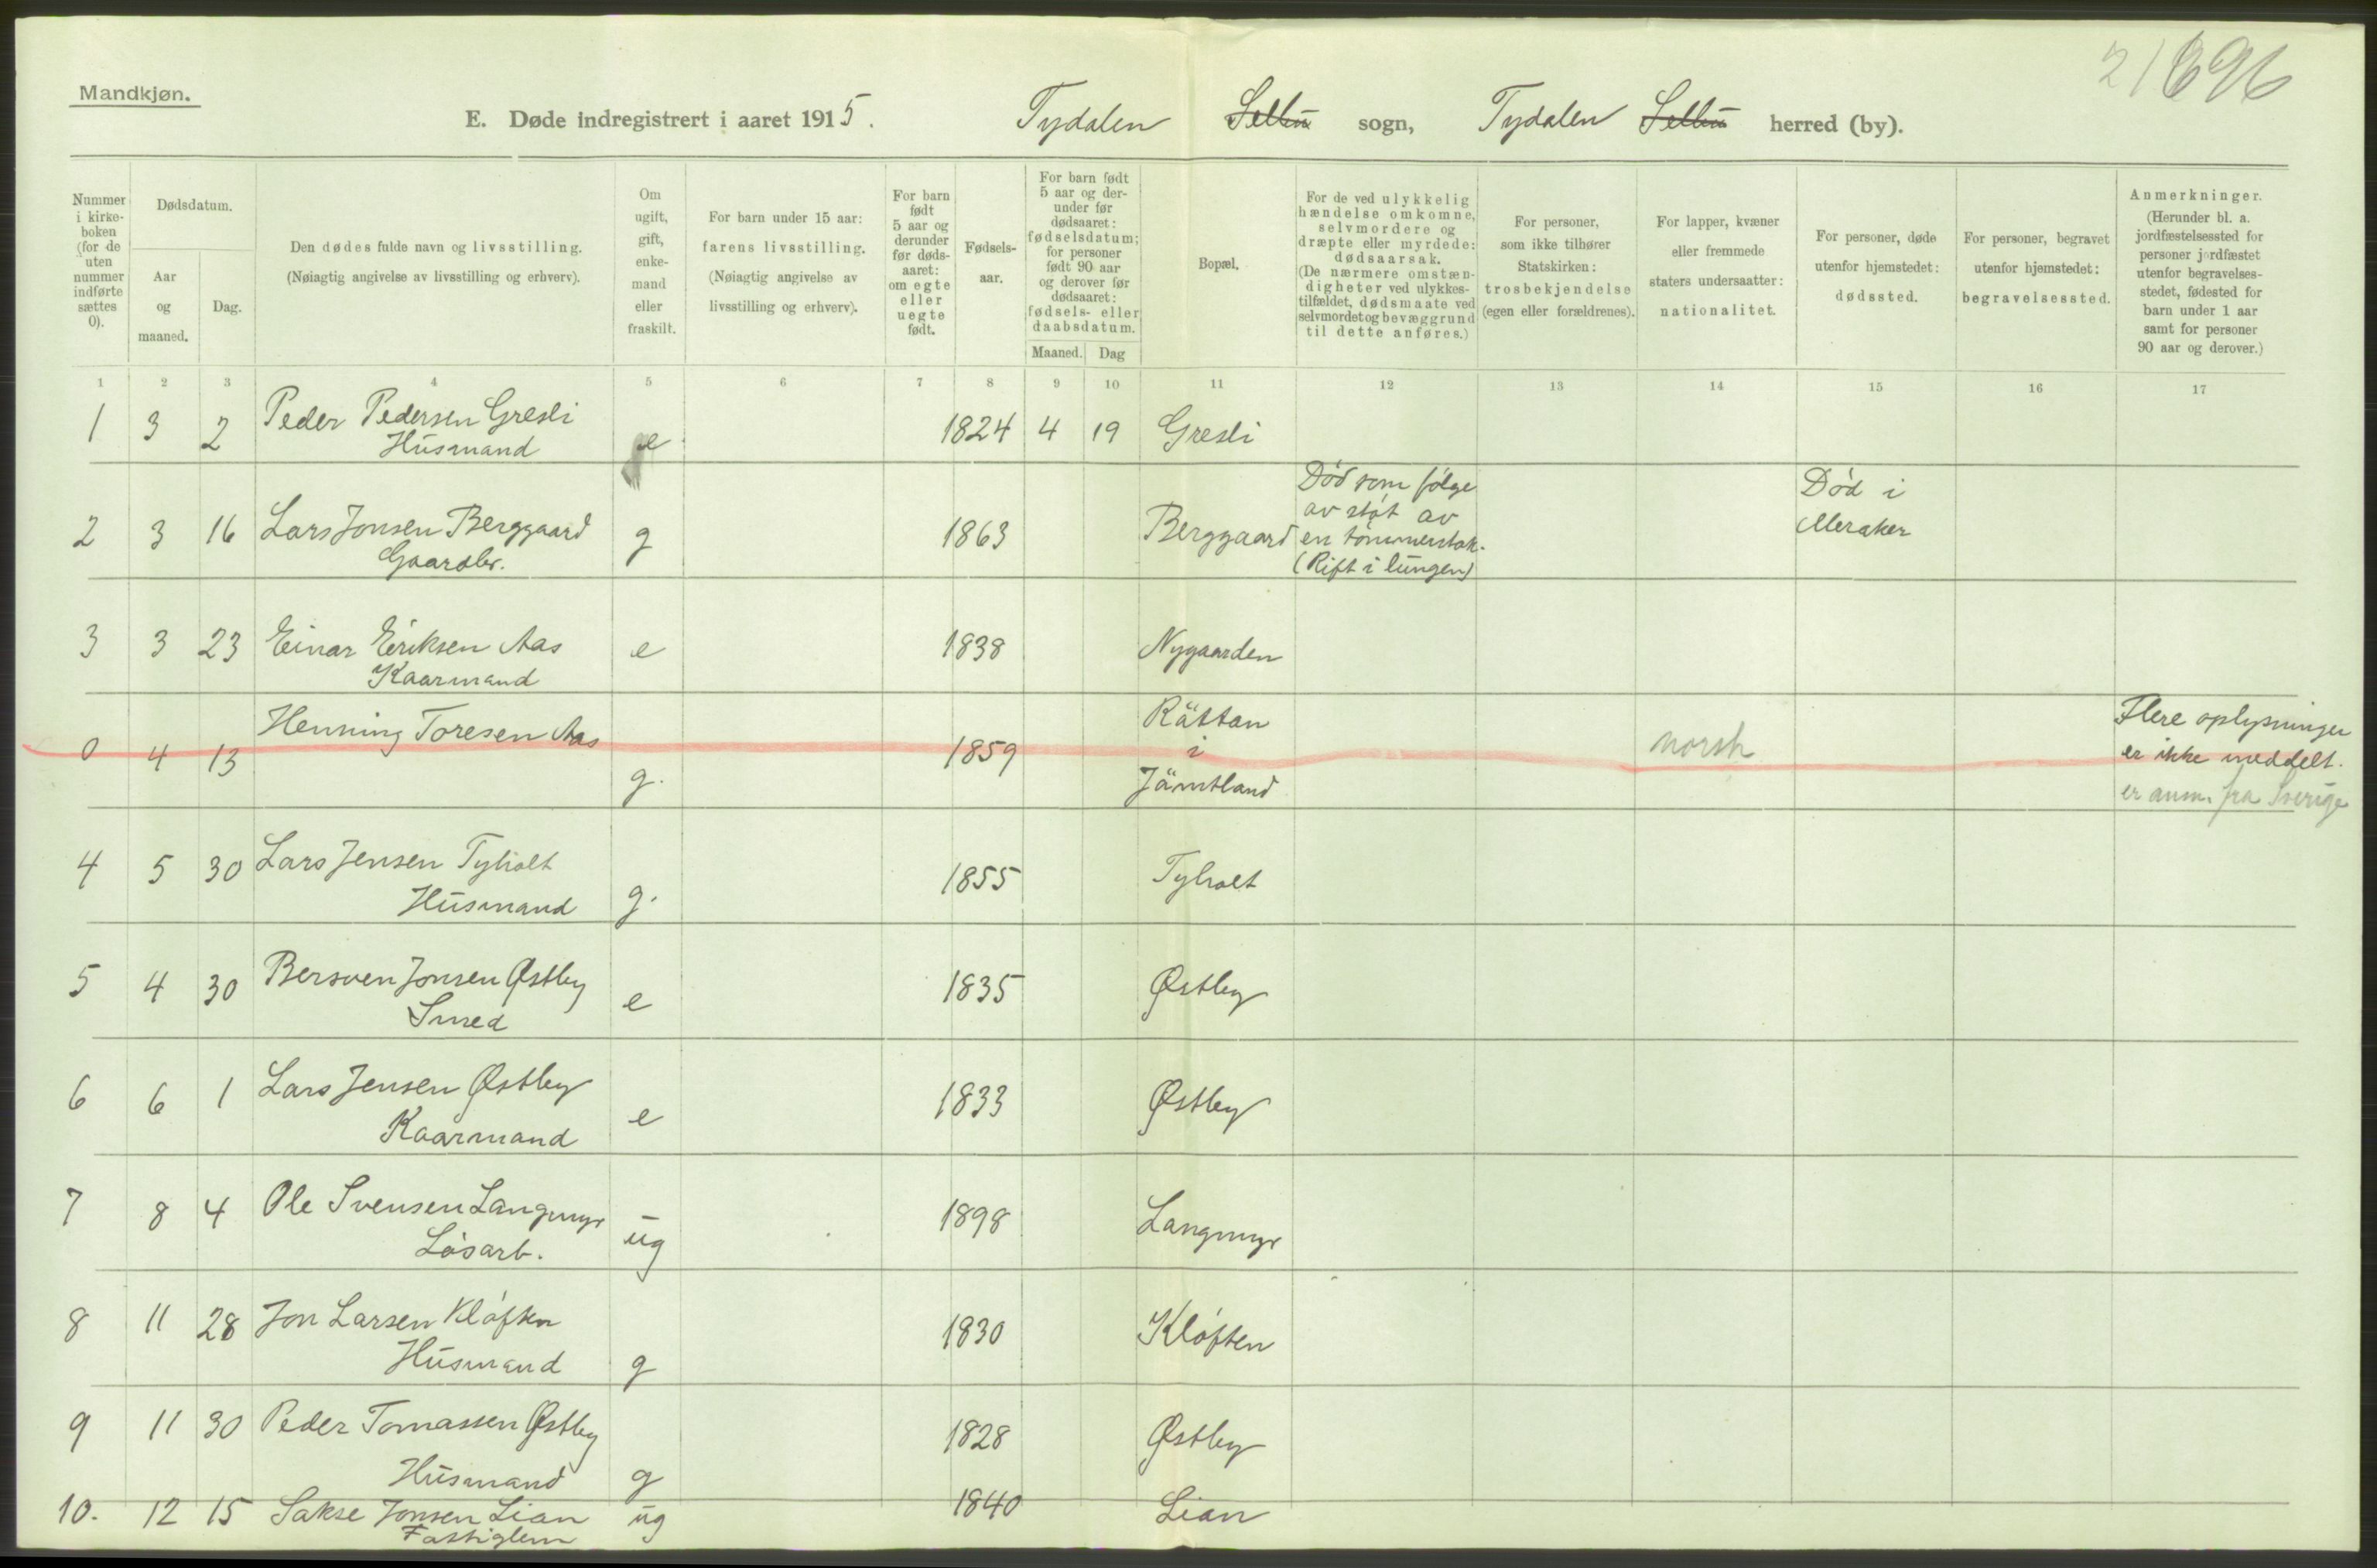 21696
Mandkjøn.
E. Døde indregistrert i aaret 1915. Tydalen Selbu sogn, Tydalen Selbu herred (by).
Nummer i kirkeboken (for de uten nummer indførte sættes 0).
Dødsdatum.
Aar og maaned.
Dag.
Den dødes fulde navn og livsstilling.
(Nøiagtig angivelse av livsstilling og erhverv).
Om ugift, gift, enkemand eller fraskilt.
For barn under 15 aar:
farens livsstilling.
(Nøiagtig angivelse av
livsstilling og erhverv).
For barn født 5 aar og derunder før dødsaaret: om egte eller uegte født.
Fødselsaar.
For barn født 5 aar og derunder før dødsaaret: fødselsdatum; for personer født 90 aar og derover før dødsaaret: fødsels- eller daabsdatum.
Maaned. Dag
Bopæl.
For de ved ulykkelig hændelse omkomne, selvmordere og dræpte eller myrdede: dødsaarsak. (De nærmere omstændigheter ved ulykkestilfældet, dødsmaate ved selvmordet og bevæggrund til dette anføres.)
For personer, som ikke tilhører Statskirken: trosbekjendelse (egen eller forældrenes).
For lapper, kvæner eller fremmede staters undersaatter: nationalitet.
For personer, døde utenfor hjemstedet: dødssted.
For personer, begravet utenfor hjemstedet: begravelsessted.
Anmerkninger.
(Herunder bl. a. jordfæstelsessted for personer jordfæstet utenfor begravelsesstedet, fødested for barn under 1 aar samt for personer 90 aar og derover.)
1 2 3 4 5 6 7 8 9 10 11 12 13 14 15 16 17
1 3 2 Peder Pedersen Gresli e 1824 4 19 Gresli
Husmand
2 3 16 Lars Jonsen Berggaard g 1863 Berggaard
Gaardbr.
Død som følge
av støt av
en tømmerstok.
(Rift i lungen)
Død i
Meraker
3 3 23 Einar Eriksen Aas e 1838 Nygaarden
Kaarmand
0 4 13 Henning Toresen Aas g. 1859
Rättan
i
Jämtland
norsk
Flere oplysninger
er ikke meddelt.
er anm. fra Sverige
4 5 30 Lars Jensen Tyholt g. 1855 Tyholt
Husmand
5 4 30 Bersven Jonsen Østby e 1835 Østby
Smed
6 6 1 Lars Jensen Østby e 1833 Østby
Kaarmand
7 8 4 Ole Svensen Langmyr ug 1898 Langmyr
Løsarb.
8 11 28 Jon Larsen Kløften g 1830 Kløften
Husmand
9 11 30 Peder Tomassen Østby g 1828 Østby
Husmand
10. 12 15 Sakse Jonsen Lian ug 1840 Lian
Fattiglem